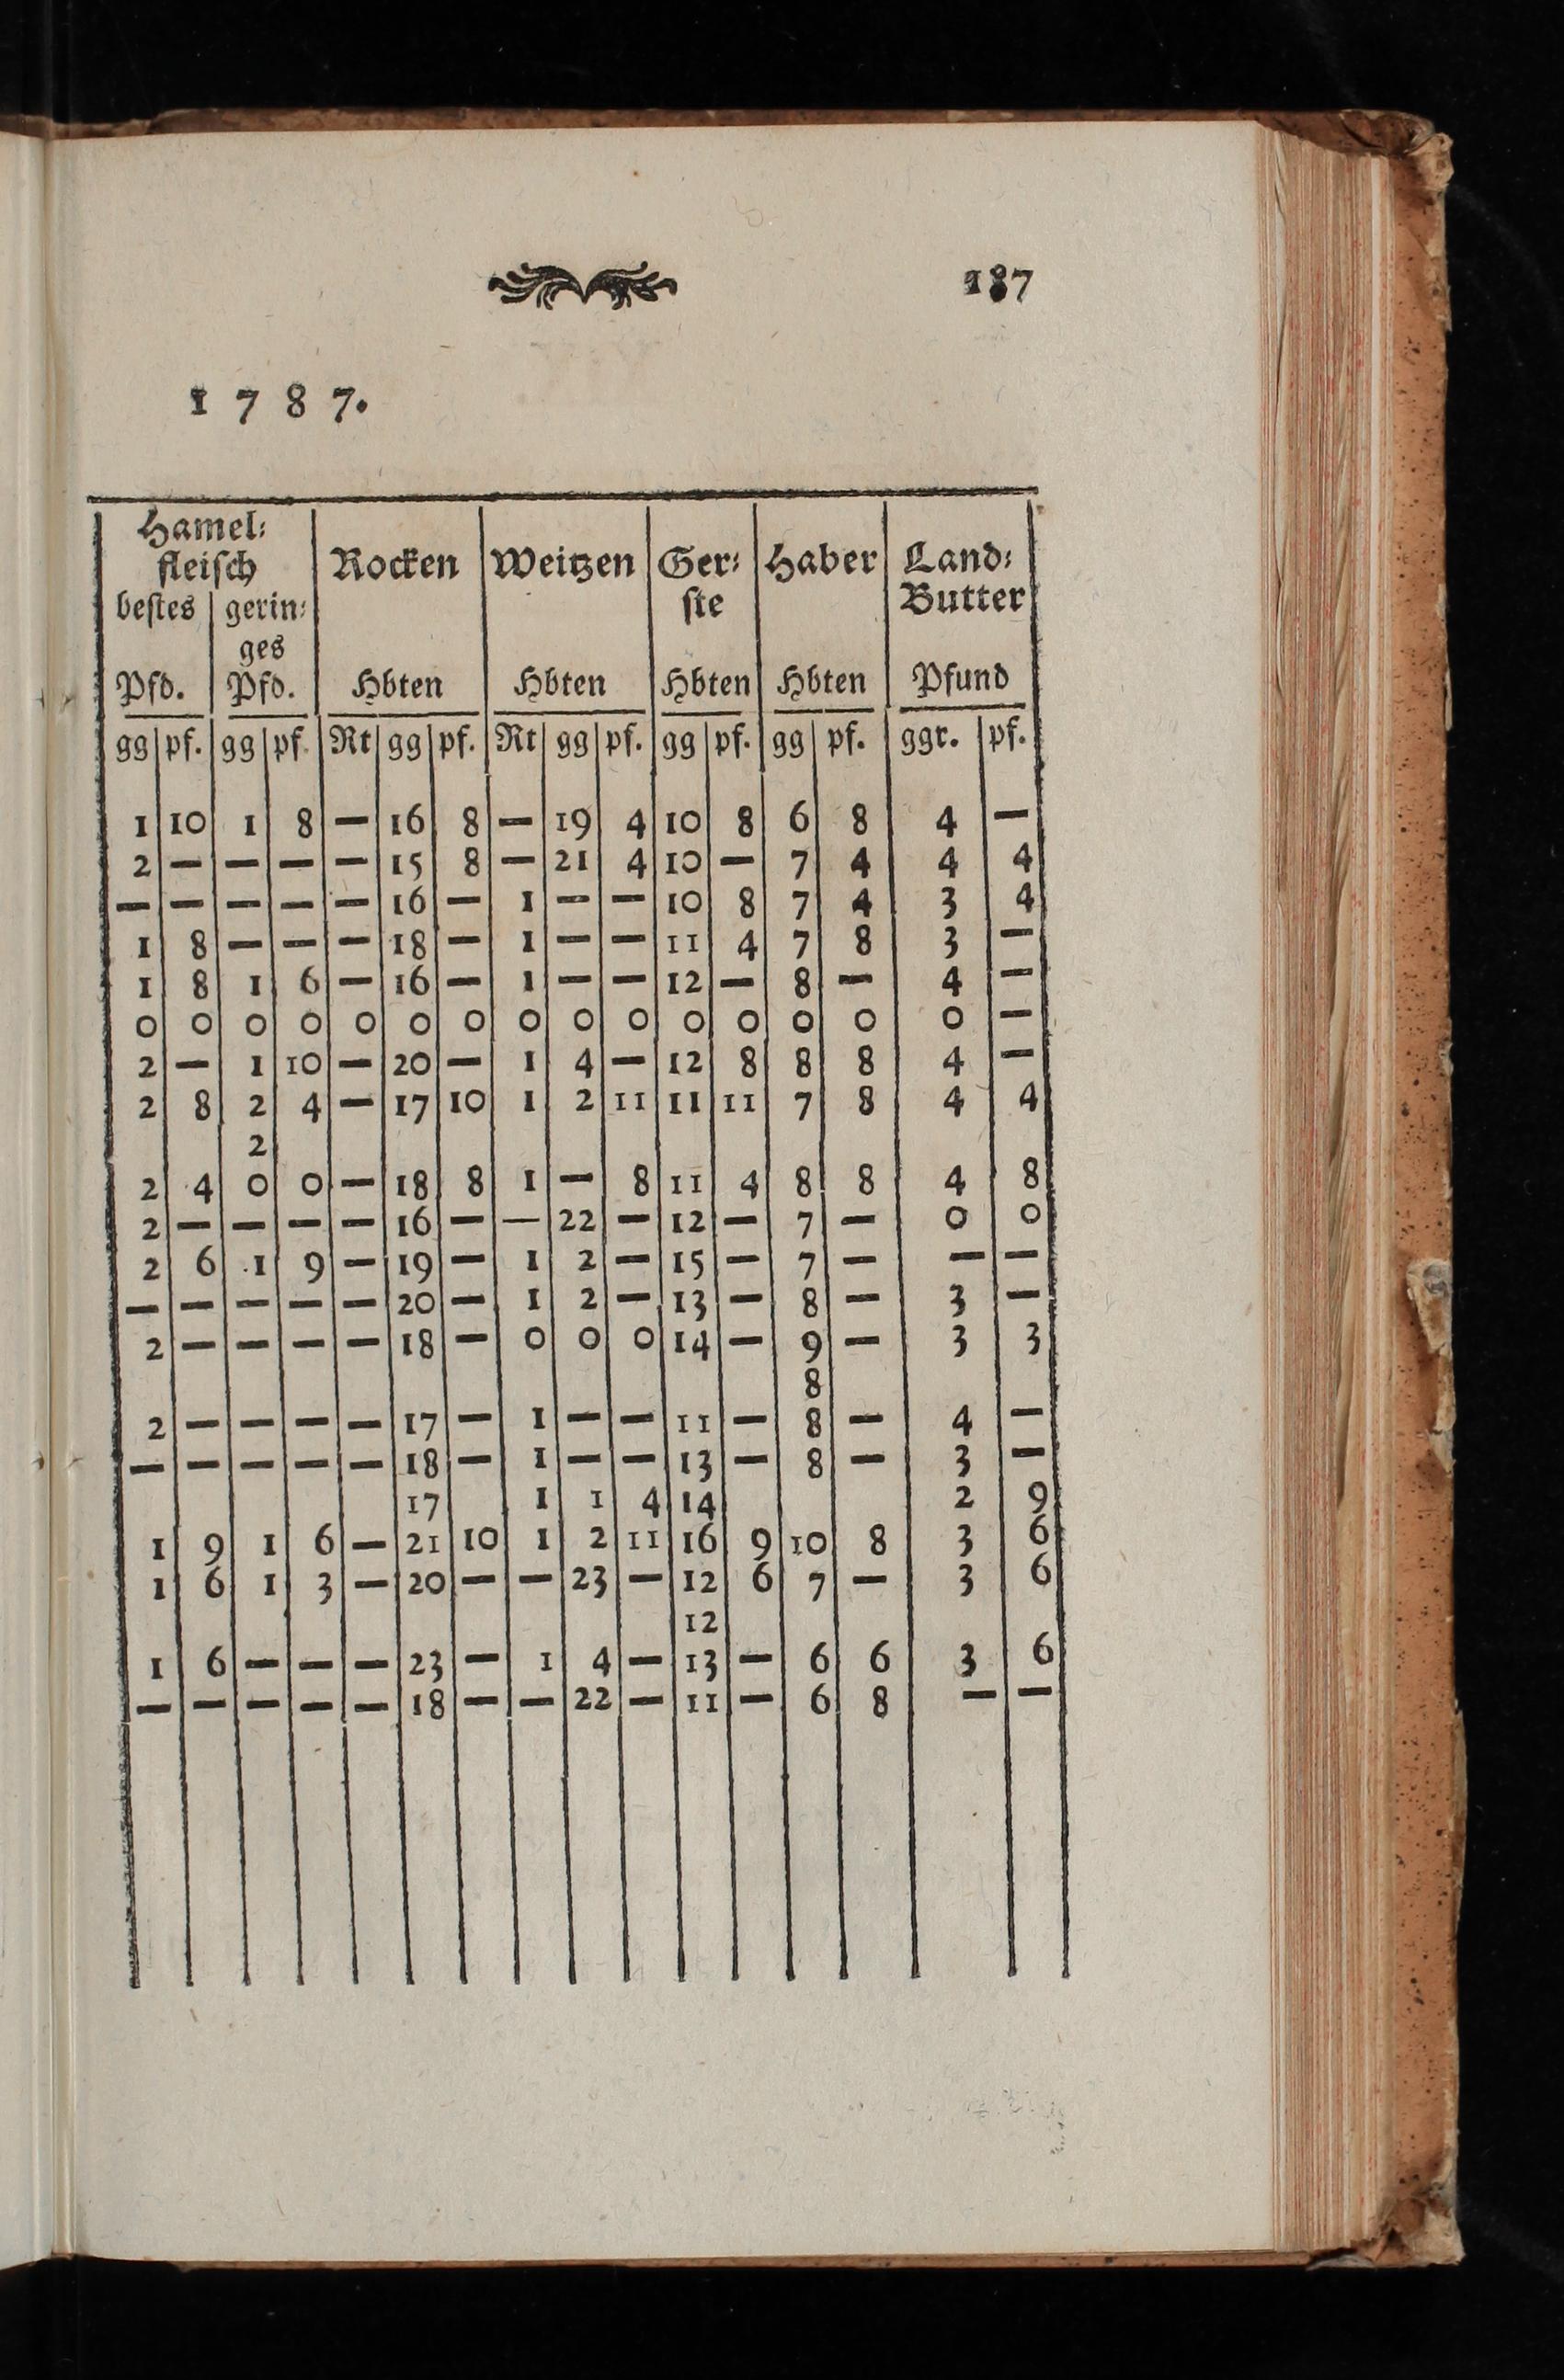 187
1787.
Hamel⸗
fleiſch Rocken Weitzen Ger⸗ Haber Land⸗
beſtes gerin⸗ ſte Butter
ges
Pfd. Pfd. Hbten Hbten Hbten Hbten Pfund
gg pf. gg pf. Rt gg pf. Rt gg pf. gg pf. gg pf. ggr. pf.
1 10 1 8 — 16 8 — 19 4 10 8 6 8 4 —
2 — — — — 15 8 — 21 4 10 — 7 4 4 4
— — — — — 16 — 1 — — 10 8 7 4 3 4
1 8 — — — 18 — 1 — — 11 4 7 8 3 —
1 8 1 6 — 16 — 1 — — 12 — 8 — 4 —
0 0 0 0 0 0 0 0 0 0 0 0 0 0 0 —
2 — 1 10 — 20 — 1 4 — 12 8 8 8 4 —
2 8 2 4 — 17 10 1 2 11 11 11 7 8 4 4
2
2 4 0 0 — 18 8 1 — 8 11 4 8 8 4 8
2 — — — — 16 — — 22 — 12 — 7 — 0 0
2 6 1 9 — 19 — 1 2 — 15 — 7 — — —
— — — — — 20 — 1 2 — 13 — 8 — 3 —
2 — — — — 18 — 0 0 0 14 — 9 — 3 3
8
2 — — — — 17 — 1 — — 11 — 8 — 4 —
— — — — — 18 — 1 — — 13 — 8 — 3 —
17 1 1 4 14 2 9
1 9 1 6 — 21 10 1 2 11 16 9 10 8 3 6
1 6 1 3 — 20 — — 23 — 12 6 7 — 3 6
12
1 6 — — — 23 — 1 4 — 13 — 6 6 3 6
— — — — — 18 — — 22 — 11 — 6 8 — —